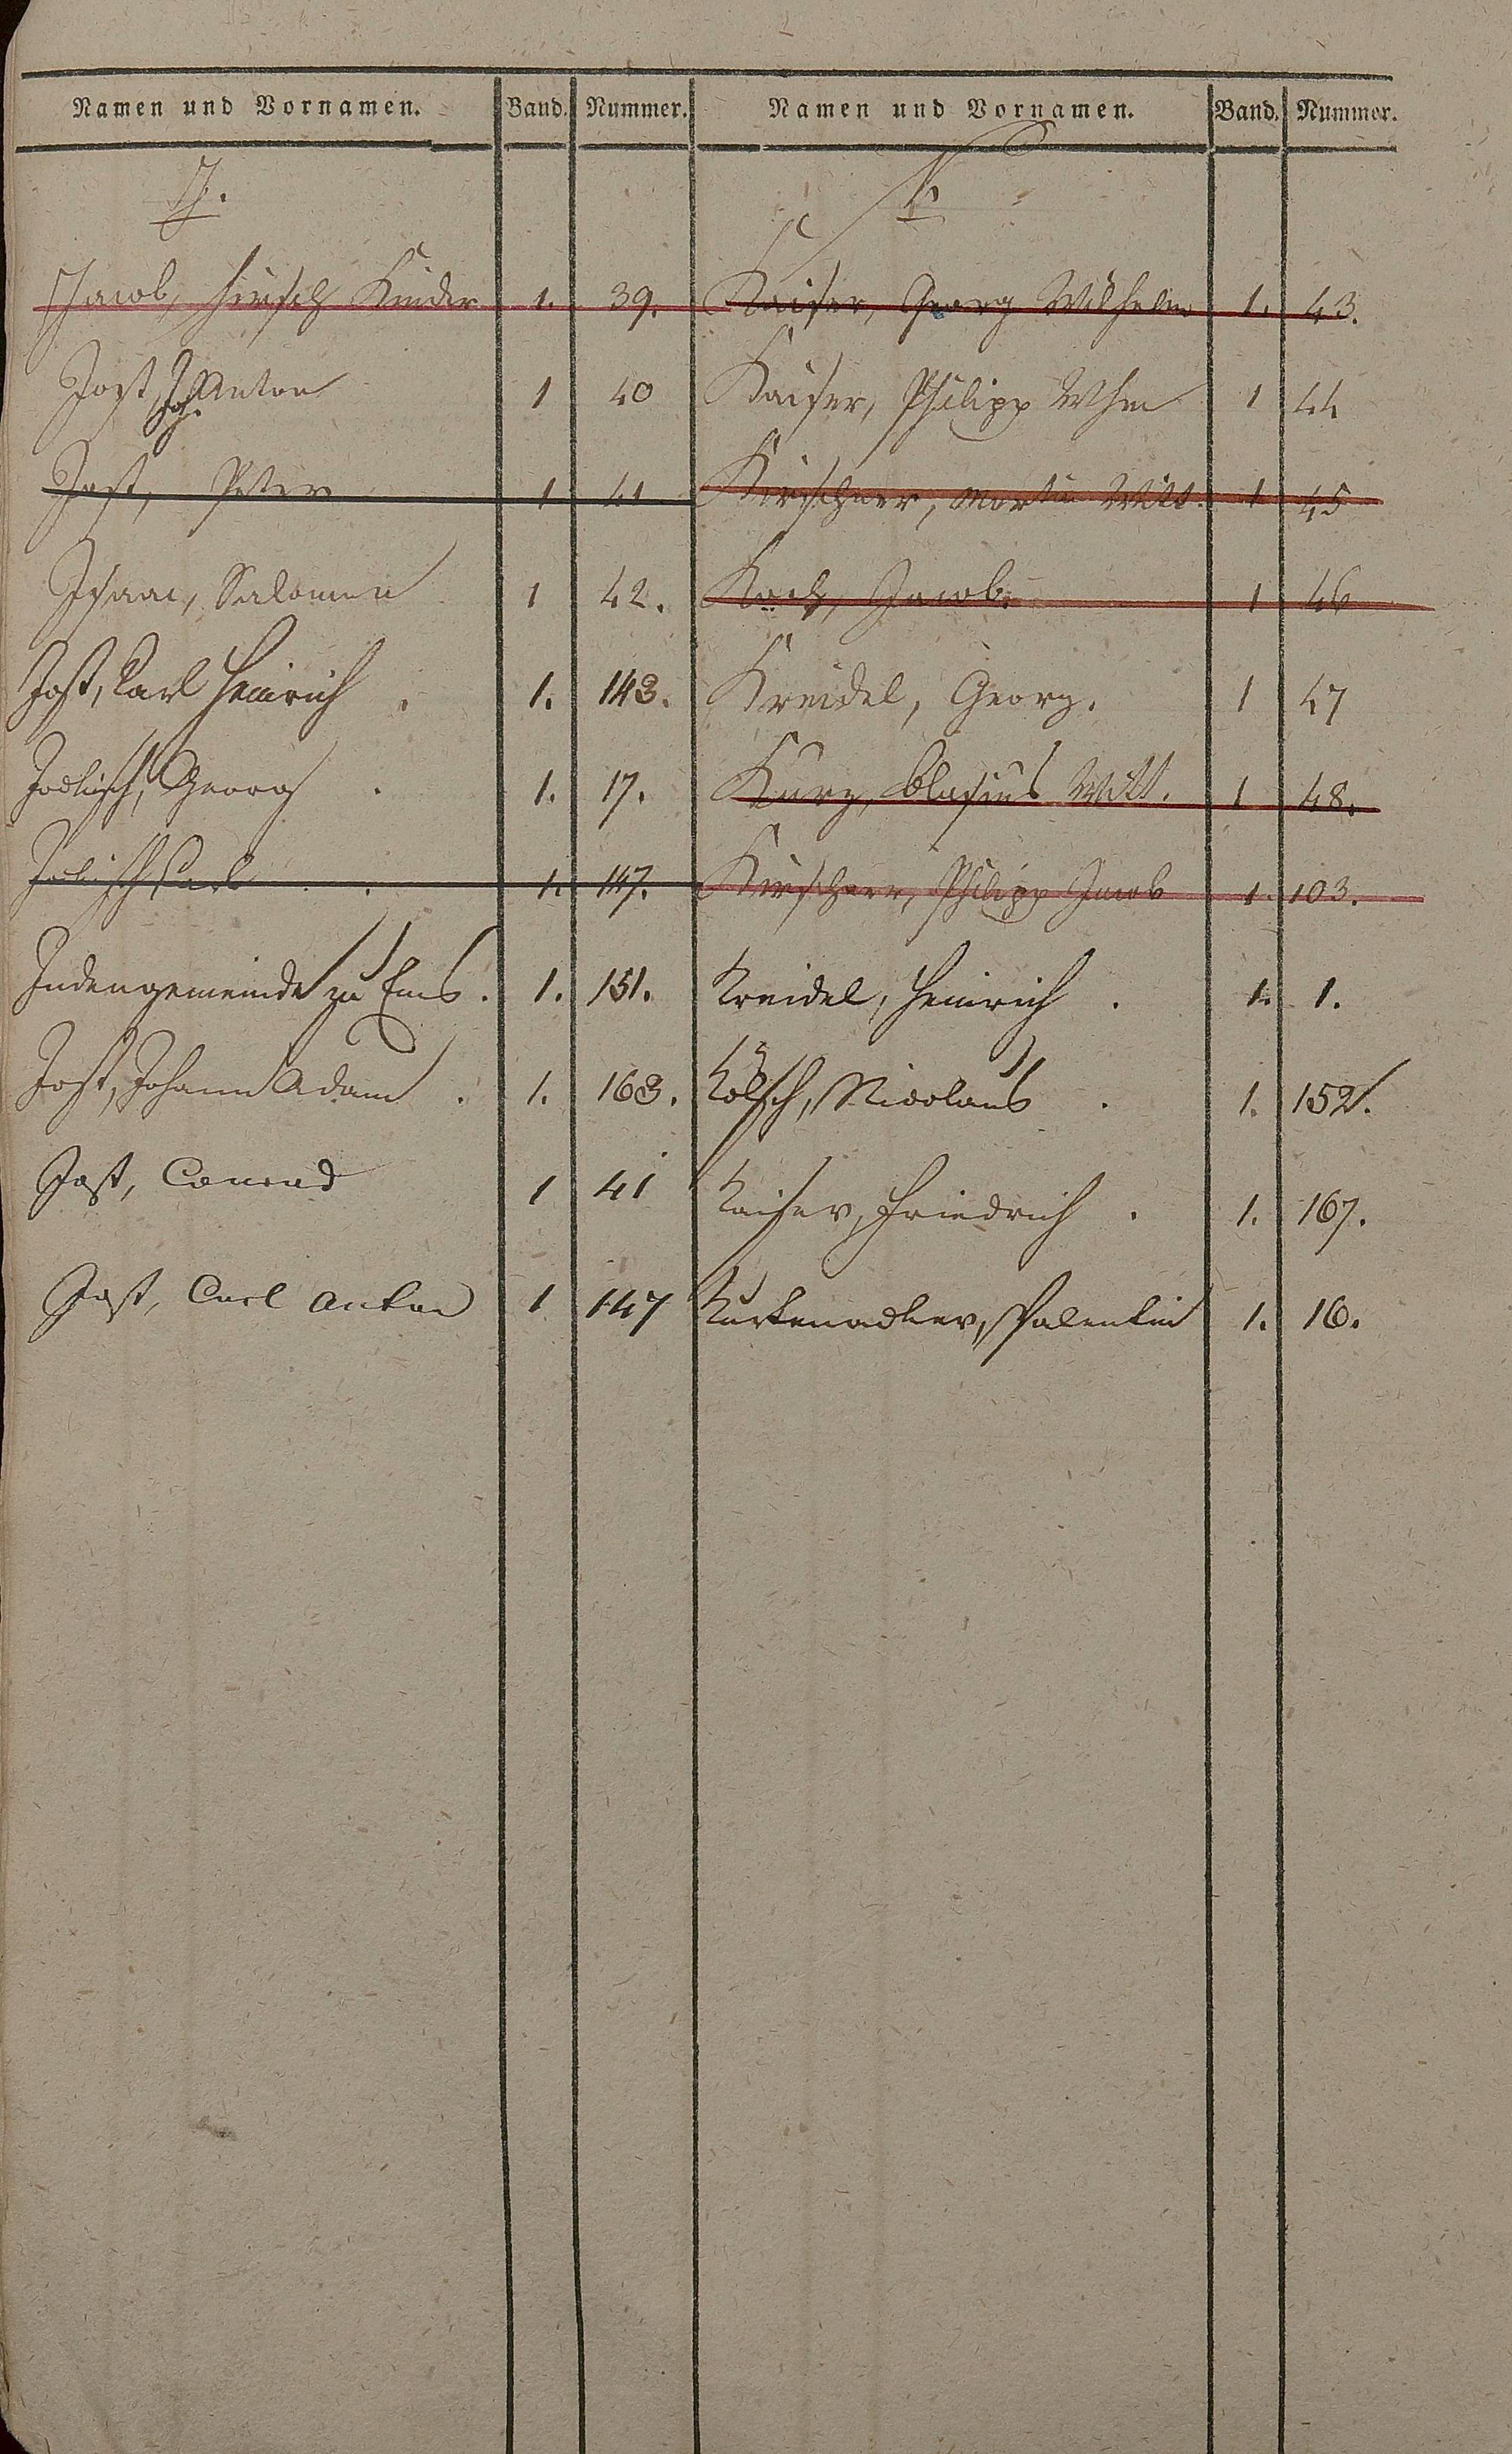 Namen und Vornamen. Band. Nummer.
J.
Jacob, Hirsch Kinder 1. 39.
Jost, Joh. Anton 1 40
Jost, Peter 1 41
Isaac, Salomon 1 42.
Jost, Karl Heinrich . 1. 143.
Georg . 1. 17.
Carl . 1. 147.
Judengemeinde zu Ems. 1. 151.
Jost, Johann Adam . 1. 163.
Jost, Conrad 1 41
Jost, Carl Anton 1 147
Namen und Vornamen. Band. Nummer.
K.
Kaiser, Georg Wilhelm 1. 43.
Kaiser, Philipp Whm 1 44
Kirschner, Martin Witt. 1 45
Koch, Jacob. 1 46
Kreidel, Georg. 1 47
Kurz, Blasius Witt. 1 48.
Kirschner, Philipp Jacob 1. 103.
Kreidel, Heinrich . 1. 1.
Kölsch, Nicolaus . 1. 152.
Kaiser, Friedrich . 1. 167.
Valentin 1. 16.